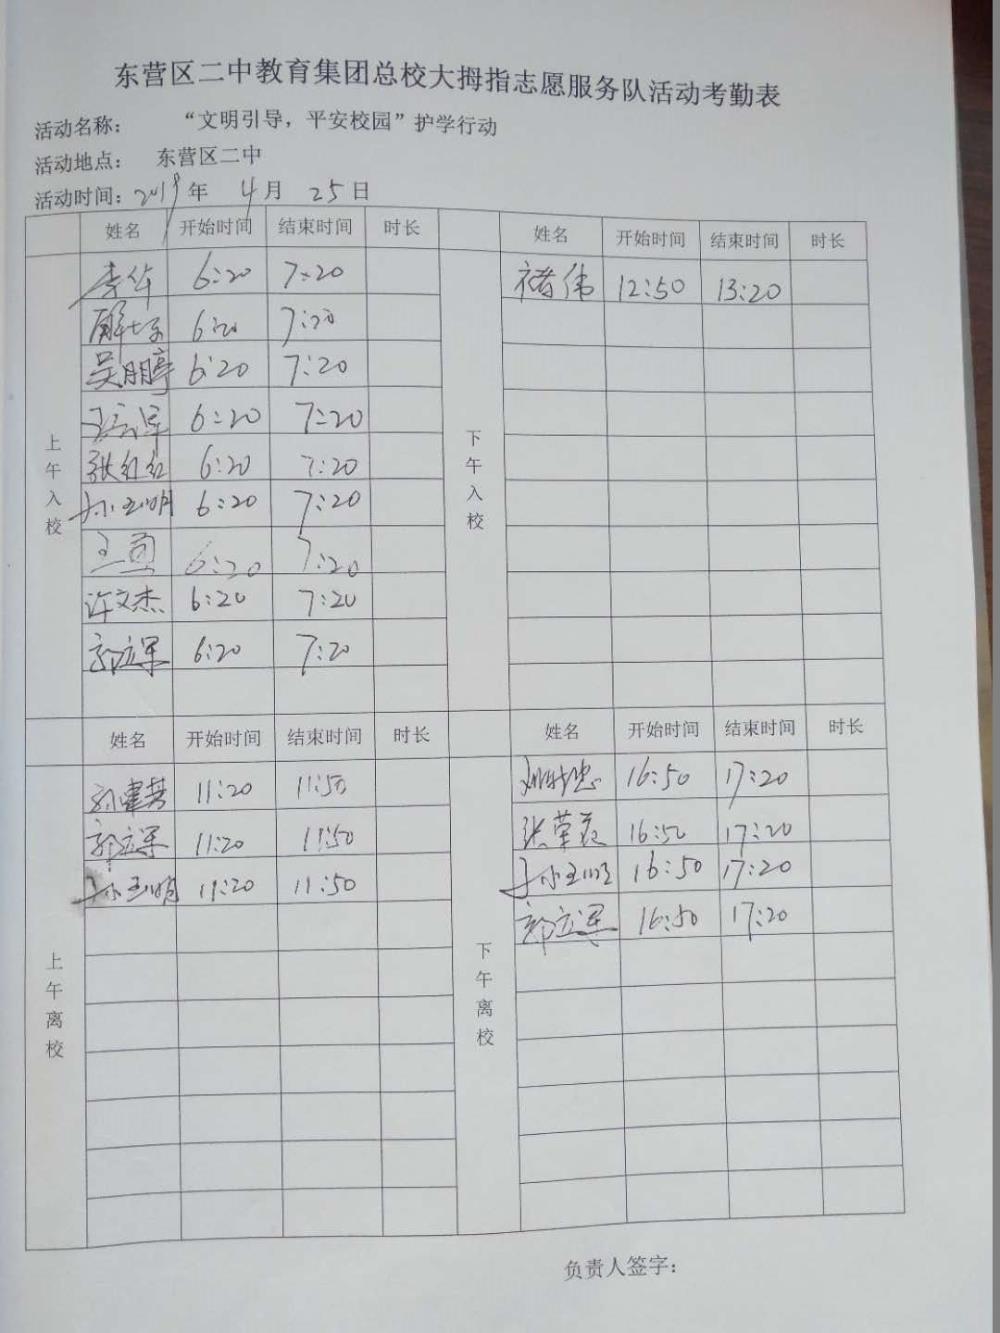 东营区二中教育集团总校大拇指志愿服务队活动考勤表
活动名称： “文明引导，平安校园”护学行动
活动地点： 东营区二中
活动时间：2019年 4月 25日
姓名 开始时间 结束时间 时长
上午入校
李华 6:20 7:20
6:20 7:20
吴朋婷 6:20 7:20
6:20 7:20
张红红 6:20 7:20
孙玉明 6:20 7:20
6:20 7:20
许文杰 6:20 7:20
郭立军 6:20 7:20
姓名 开始时间 结束时间 时长
下午入校
褚伟 12:50 13:20
姓名 开始时间 结束时间 时长
上午离校
11:20 11:50
郭立军 11:20 11:50
孙玉明 11:20 11:50
姓名 开始时间 结束时间 时长
下午离校
16:50 17:20
张荣花 16:50 17:20
孙玉明 16:50 17:20
郭立军 16:50 17:20
负责人签字：